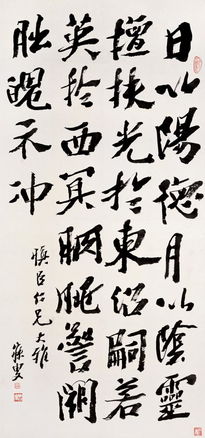 日以陽德月以陰靈
擅扶光於東沼嗣若
英於西冥朒朓警闕
朏魄示冲
慎臣仁兄大雅